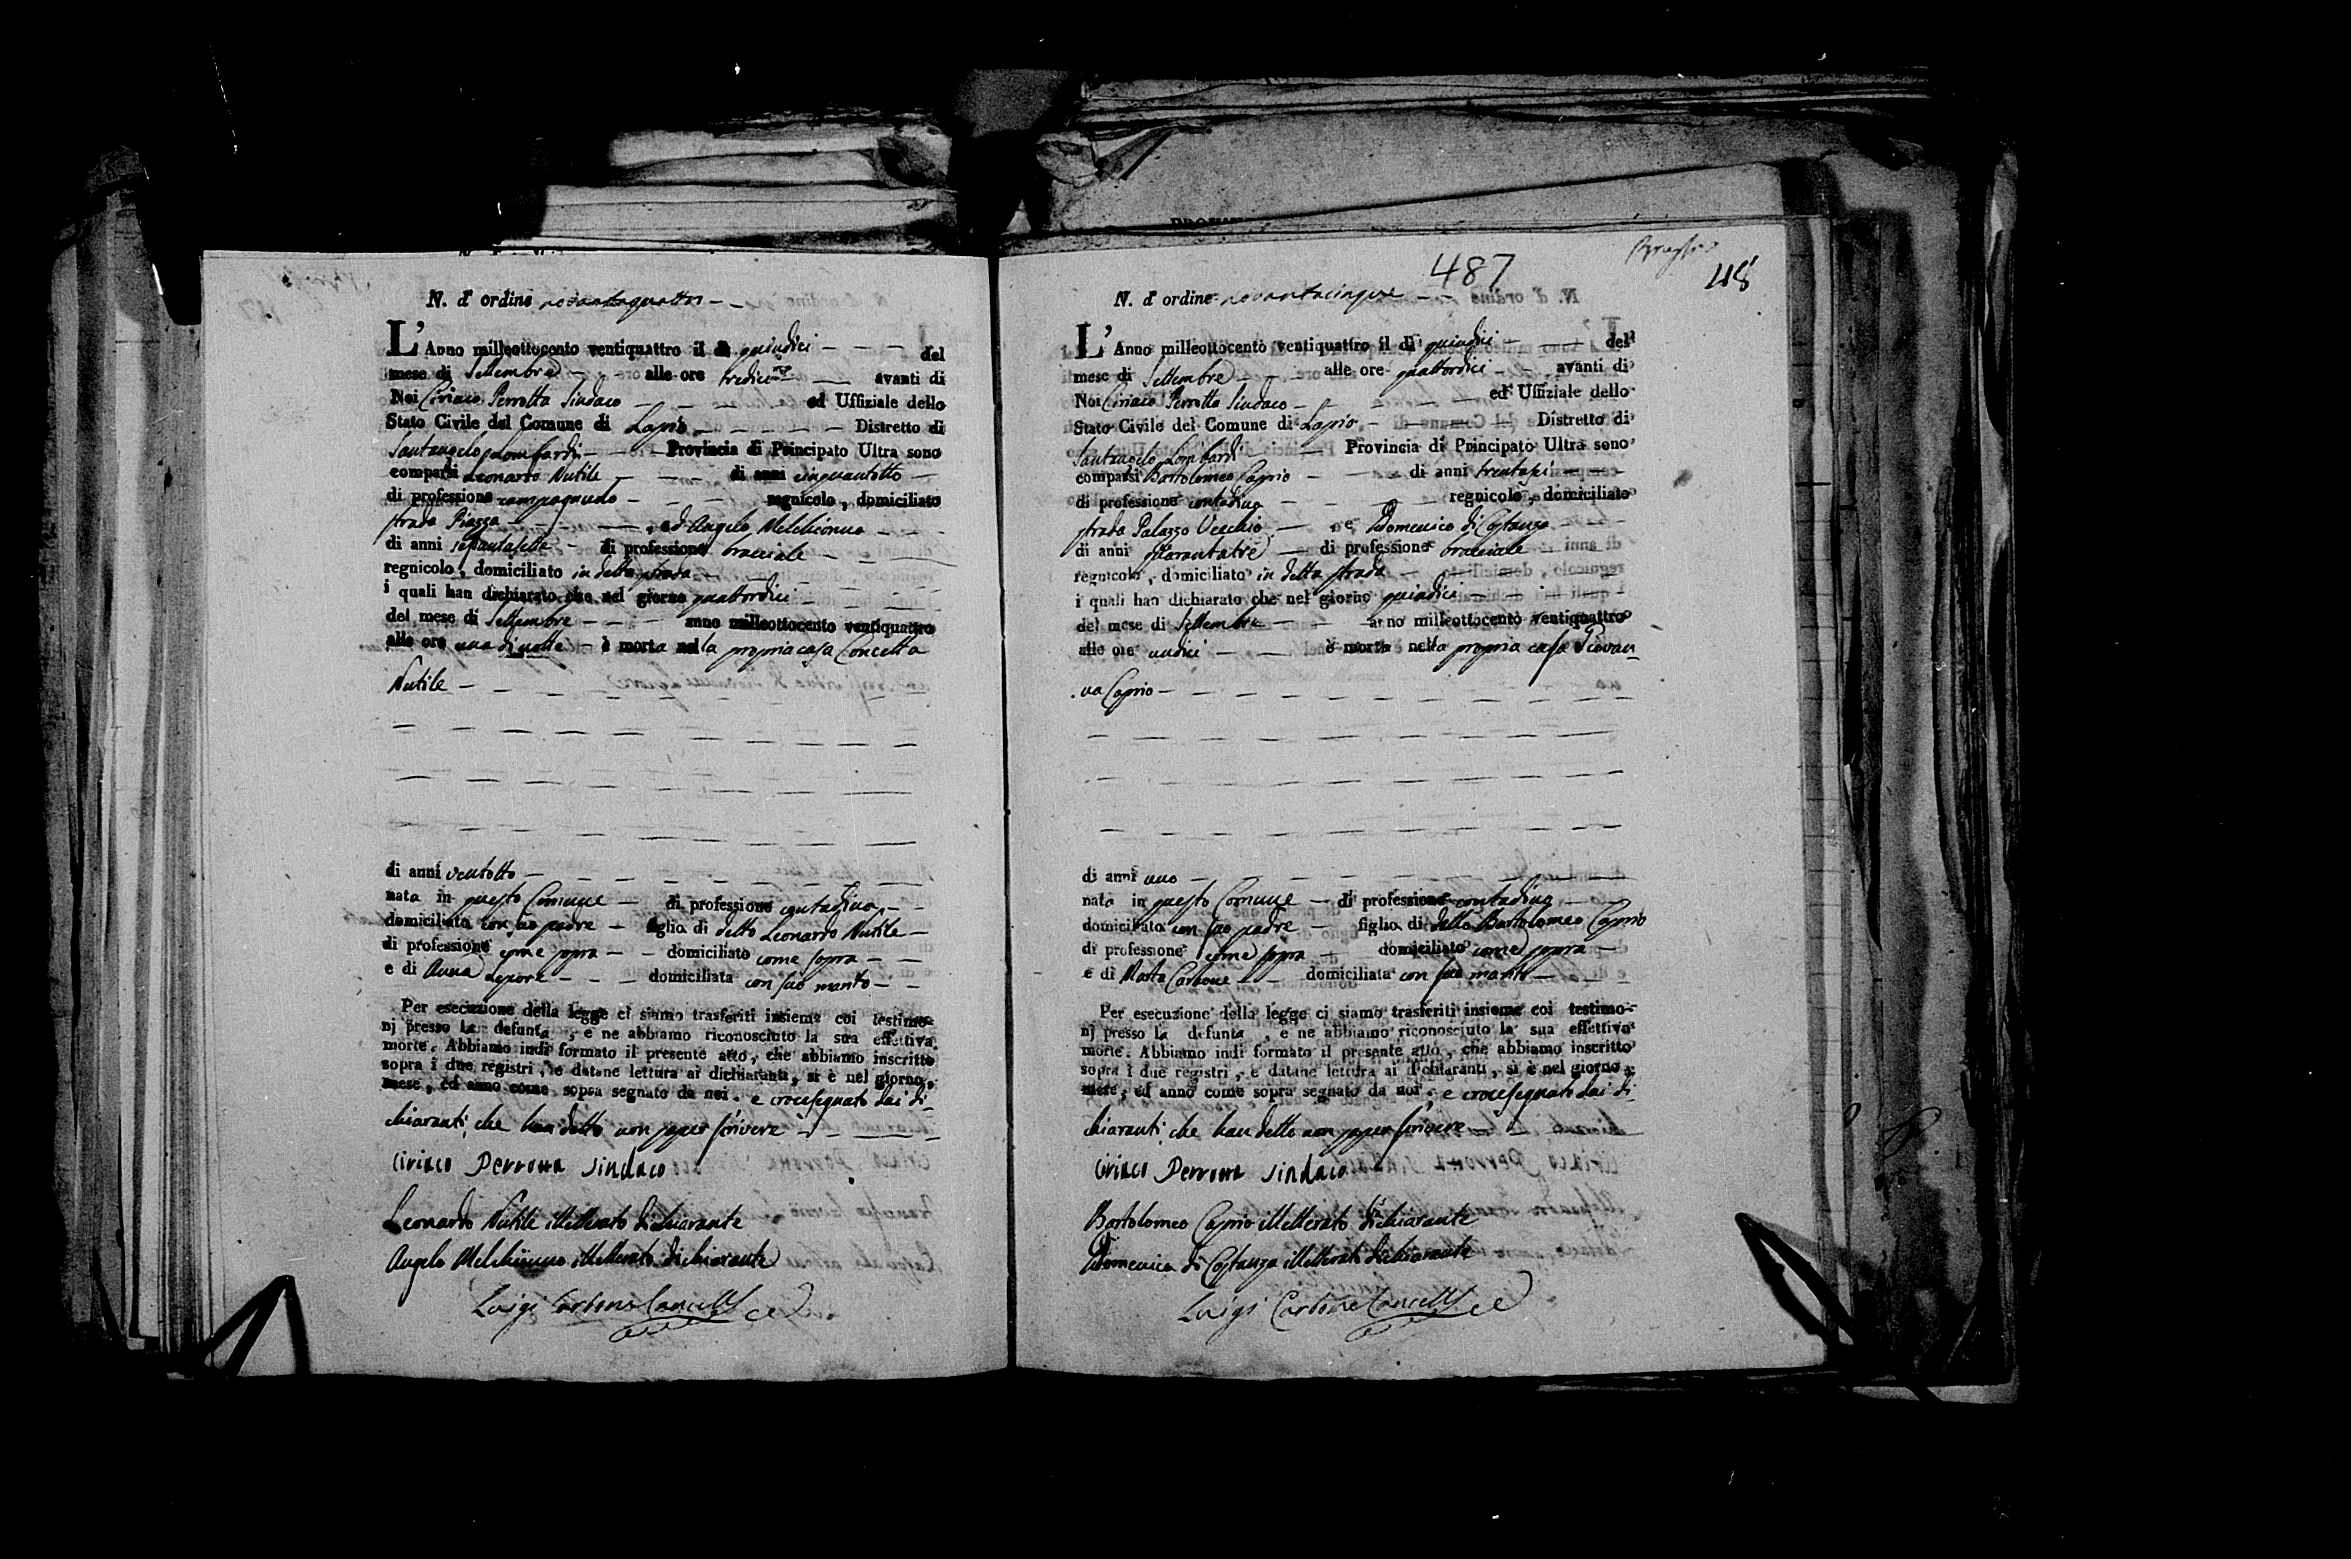 N. d' ordine novantaquattro
L' Anno milleottocento ventiquattro il dì quindici del
mese di Settembre alle ore tredici avanti di
Noi Ciriaco Perrotta Sindaco ed Uffiziale dello
Stato Civile del Comune di Lapio Distretto di
Santangelo Lombardi Provincia di Principato Ultra sono
comparsi Leonardo Nutile di anni cinquantotto
di professione campagnuolo regnicolo, domiciliato
strada Piazza ed Angelo Melchionno
di anni settantasette di professione bracciale
regnicolo, domiciliato in detta strada
i quali han dichiarato che nel giorno quattordici
del mese di Settembre anno milleottocento ventiquattro
alle ore una di notte è morta nella propria casa Concetta
Nutile
di anni ventotto
nata in questo Comune di professione contadina
domiciliata con suo padre figlia di detto Leonardo Nutile
di professione come sopra domiciliato come sopra
e di Anna Lepore domiciliata con suo marito
Per esecuzione della legge ci siamo trasferiti insieme coi testimo-
nj presso la defunta, e ne abbiamo riconosciuto la sua effettiva
morte. Abbiamo indi formato il presente atto, che abbiamo inscritto
sopra i due registri, e datane lettura ai dichiaranti, si è nel giorno,
mese, ed anno come sopra segnato da noi. e crocesegnato dai di-
chiaranti, che han detto non saper scrivere
Ciriaco Perrotta Sindaco
Leonardo Nutile illetterato dichiarante
Angelo Melchionno illetterato dichiarante
Luigi Carbone Cancell
487
48
N. d' ordine novantacinque
L' Anno milleottocento ventiquattro il dì quindici del
mese di Settembre alle ore quattordici avanti di
Noi Ciriaco Perrotta Sindaco ed Uffiziale dello
Stato Civile del Comune di Lapio Distretto di
Santangelo Lombardi Provincia di Principato Ultra sono
comparsi Bartolomeo Caprio di anni trentasei
di professione contadino regnicolo, domiciliato
strada Palazzo Vecchio e Domenico di Costanza
di anni quarantatre di professione bracciale
regnicolo, domiciliato in detta strada
i quali han dichiarato che nel giorno quindici
del mese di Settembre anno milleottocento ventiquattro
alle ore undici è morta nella propria casa Giovan
na Caprio
di anni uno
nata in questo Comune di professione contadina
domiciliata con suo padre figlia di detto Bartolomeo Caprio
di professione come sopra domiciliato come sopra
e di Marta Carbone domiciliata con suo marito
Per esecuzione della legge ci siamo trasferiti insieme coi testimo-
nj presso la defunta, e ne abbiamo riconosciuto la sua effettiva
morte. Abbiamo indi formato il presente atto, che abbiamo inscritto
sopra i due registri, e datane lettura ai dichiaranti, si è nel giorno,
mese, ed anno come sopra segnato da noi, e crocesegnato dai di-
chiaranti, che han detto non saper scrivere
Ciriaco Perrotta Sindaco
Bartolomeo Caprio illetterato dichiarante
Domenico di Costanza illetterato dichiarante
Luigi Carbone Cancell